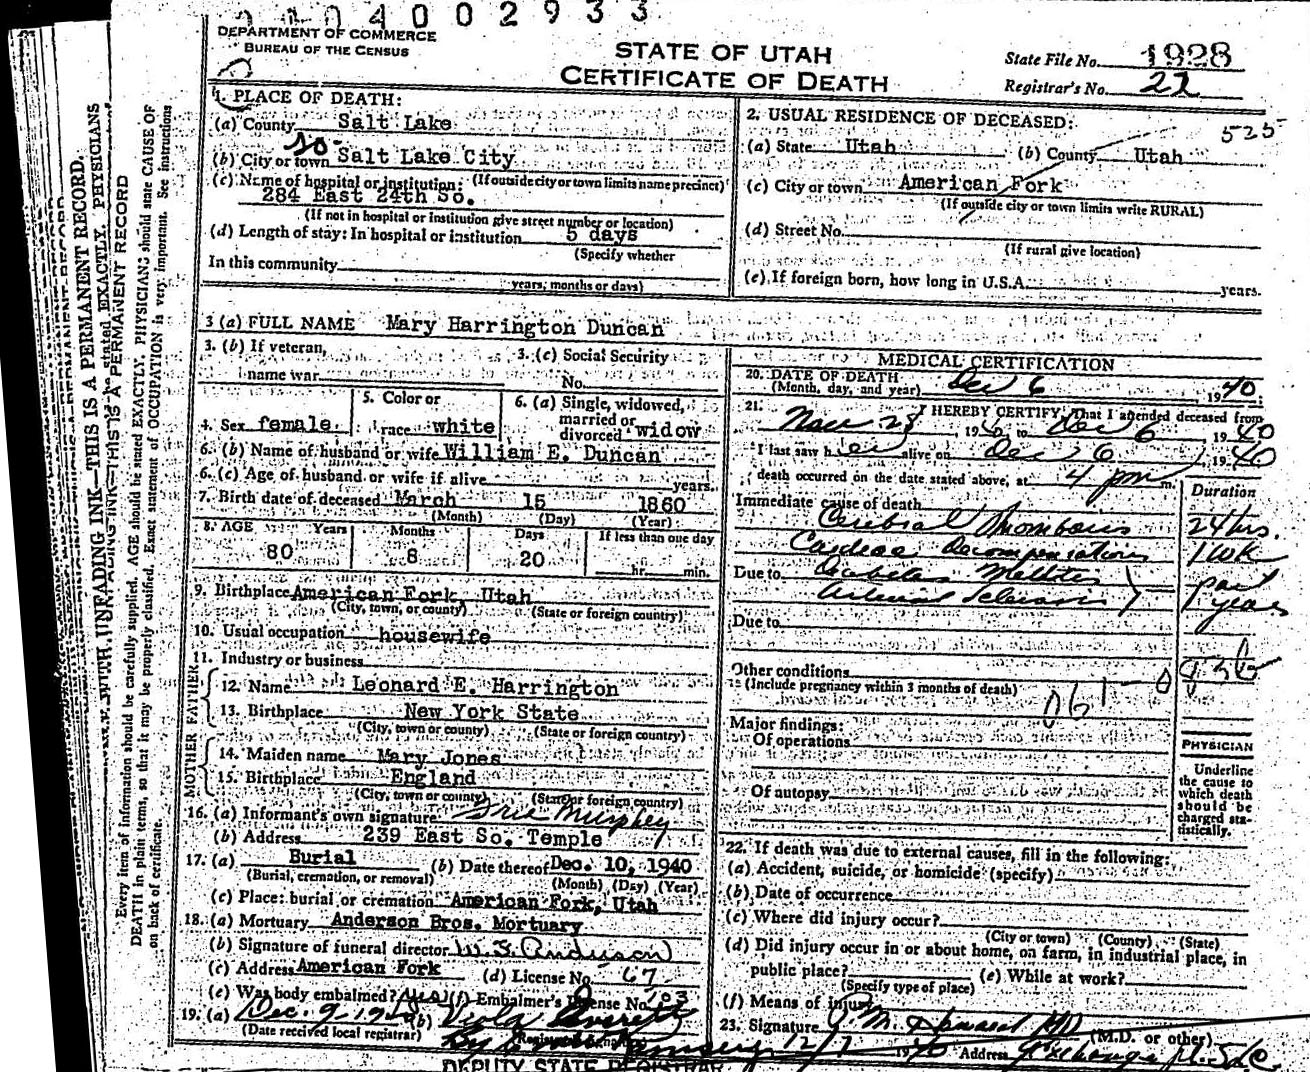 04002933
DEPARTMENT OF COMMERCE
BUREAU OF THE CENSUS
STATE OF UTAH
CERTIFICATE OF DEATH
State File No. 1928
Registrar's No. 21
1. PLACE OF DEATH:
(a) County Salt Lake
So.
(b) City or town Salt Lake City
(c) Name of hospital or institution: (If outside city or town limits name precinct)
284 East 24th So.
(If not in hospital or institution give street number or location)
(d) Length of stay: In hospital or institution 5 days
(Specify whether
In this community
years, months or days)
2. USUAL RESIDENCE OF DECEASED:
525
(a) State Utah (b) County Utah
(c) City or town American Fork
(If outside city or town limits write RURAL)
(d) Street No.
(If rural give location)
(e) If foreign born, how long in U.S.A. years.
3 (a) FULL NAME Mary Harrington Duncan
3. (b) If veteran, name war
3. (c) Social Security No.
4. Sex female
5. Color or race white
6. (a) Single, widowed, married or divorced widow
6. (b) Name of husband or wife William E. Duncan
6. (c) Age of husband or wife if alive years.
7. Birth date of deceased March 15 1860
(Month) (Day) (Year)
8. AGE Years Months Days If less than one day
80 8 20 hr. min.
9. Birthplace American Fork, Utah
(City, town, or county) (State or foreign country)
10. Usual occupation housewife
11. Industry or business
FATHER
12. Name Leonard E. Harrington
13. Birthplace New York State
(City, town or county) (State or foreign country)
MOTHER
14. Maiden name Mary Jones
15. Birthplace England
(City, town or county) (State or foreign country)
16. (a) Informant's own signature Murphey
(b) Address 239 East So. Temple
17. (a) Burial (b) Date thereof Dec. 10, 1940
(Burial, cremation, or removal) (Month) (Day) (Year)
(c) Place: burial or cremation American Fork, Utah
18. (a) Mortuary Anderson Bros. Mortuary
(b) Signature of funeral director W. S. Anderson
(c) Address American Fork (d) License No. 67
(e) Was body embalmed? yes (f) Embalmer's License No. 103
19. (a) Dec. 9, 1940 (b) Viola Everett
(Date received local registrar)
DEPUTY STATE REGISTRAR
MEDICAL CERTIFICATION
20. DATE OF DEATH
(Month, day, and year) Dec 6 1940
21. I HEREBY CERTIFY, That I attended deceased from
Nov 23, 1940 to Dec 6 1940
I last saw her alive on Dec 6, 1940
death occurred on the date stated above, at 4 pm m.
Duration
Immediate cause of death
Cerebral Thombosis 24 hrs.
Cardiac Decompensation 1 wk
Due to Diabetes Mellitus past
Arterial Sclerosis years
Due to
Other conditions
(Include pregnancy within 3 months of death)
061-0
Major findings:
Of operations
Of autopsy
PHYSICIAN
Underline the cause to which death should be charged statistically.
22. If death was due to external causes, fill in the following:
(a) Accident, suicide, or homicide (specify)
(b) Date of occurrence
(c) Where did injury occur?
(City or town) (County) (State)
(d) Did injury occur in or about home, on farm, in industrial place, in
public place? (e) While at work?
(Specify type of place)
(f) Means of injury
23. Signature M.D. (M.D. or other)
12/7 1940 Address
Every item of information should be carefully supplied. AGE should be stated EXACTLY. PHYSICIANS should state CAUSE OF
DEATH in plain terms, so that it may be properly classified. Exact statement of OCCUPATION is very important. See instructions
on back of certificate.